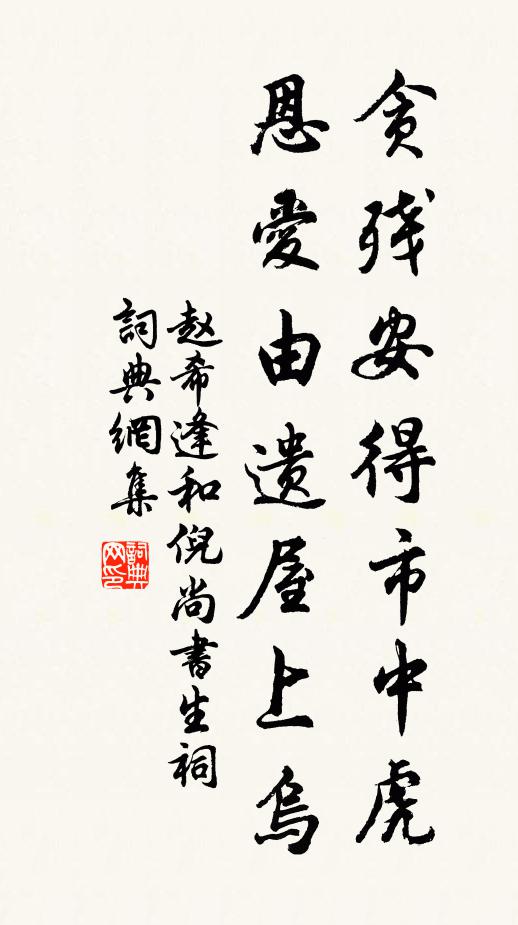 贪残安得市中虎
恩愛由遗屋上烏
赵希逢和倪尚書生祠
詞典網集
詞典网印